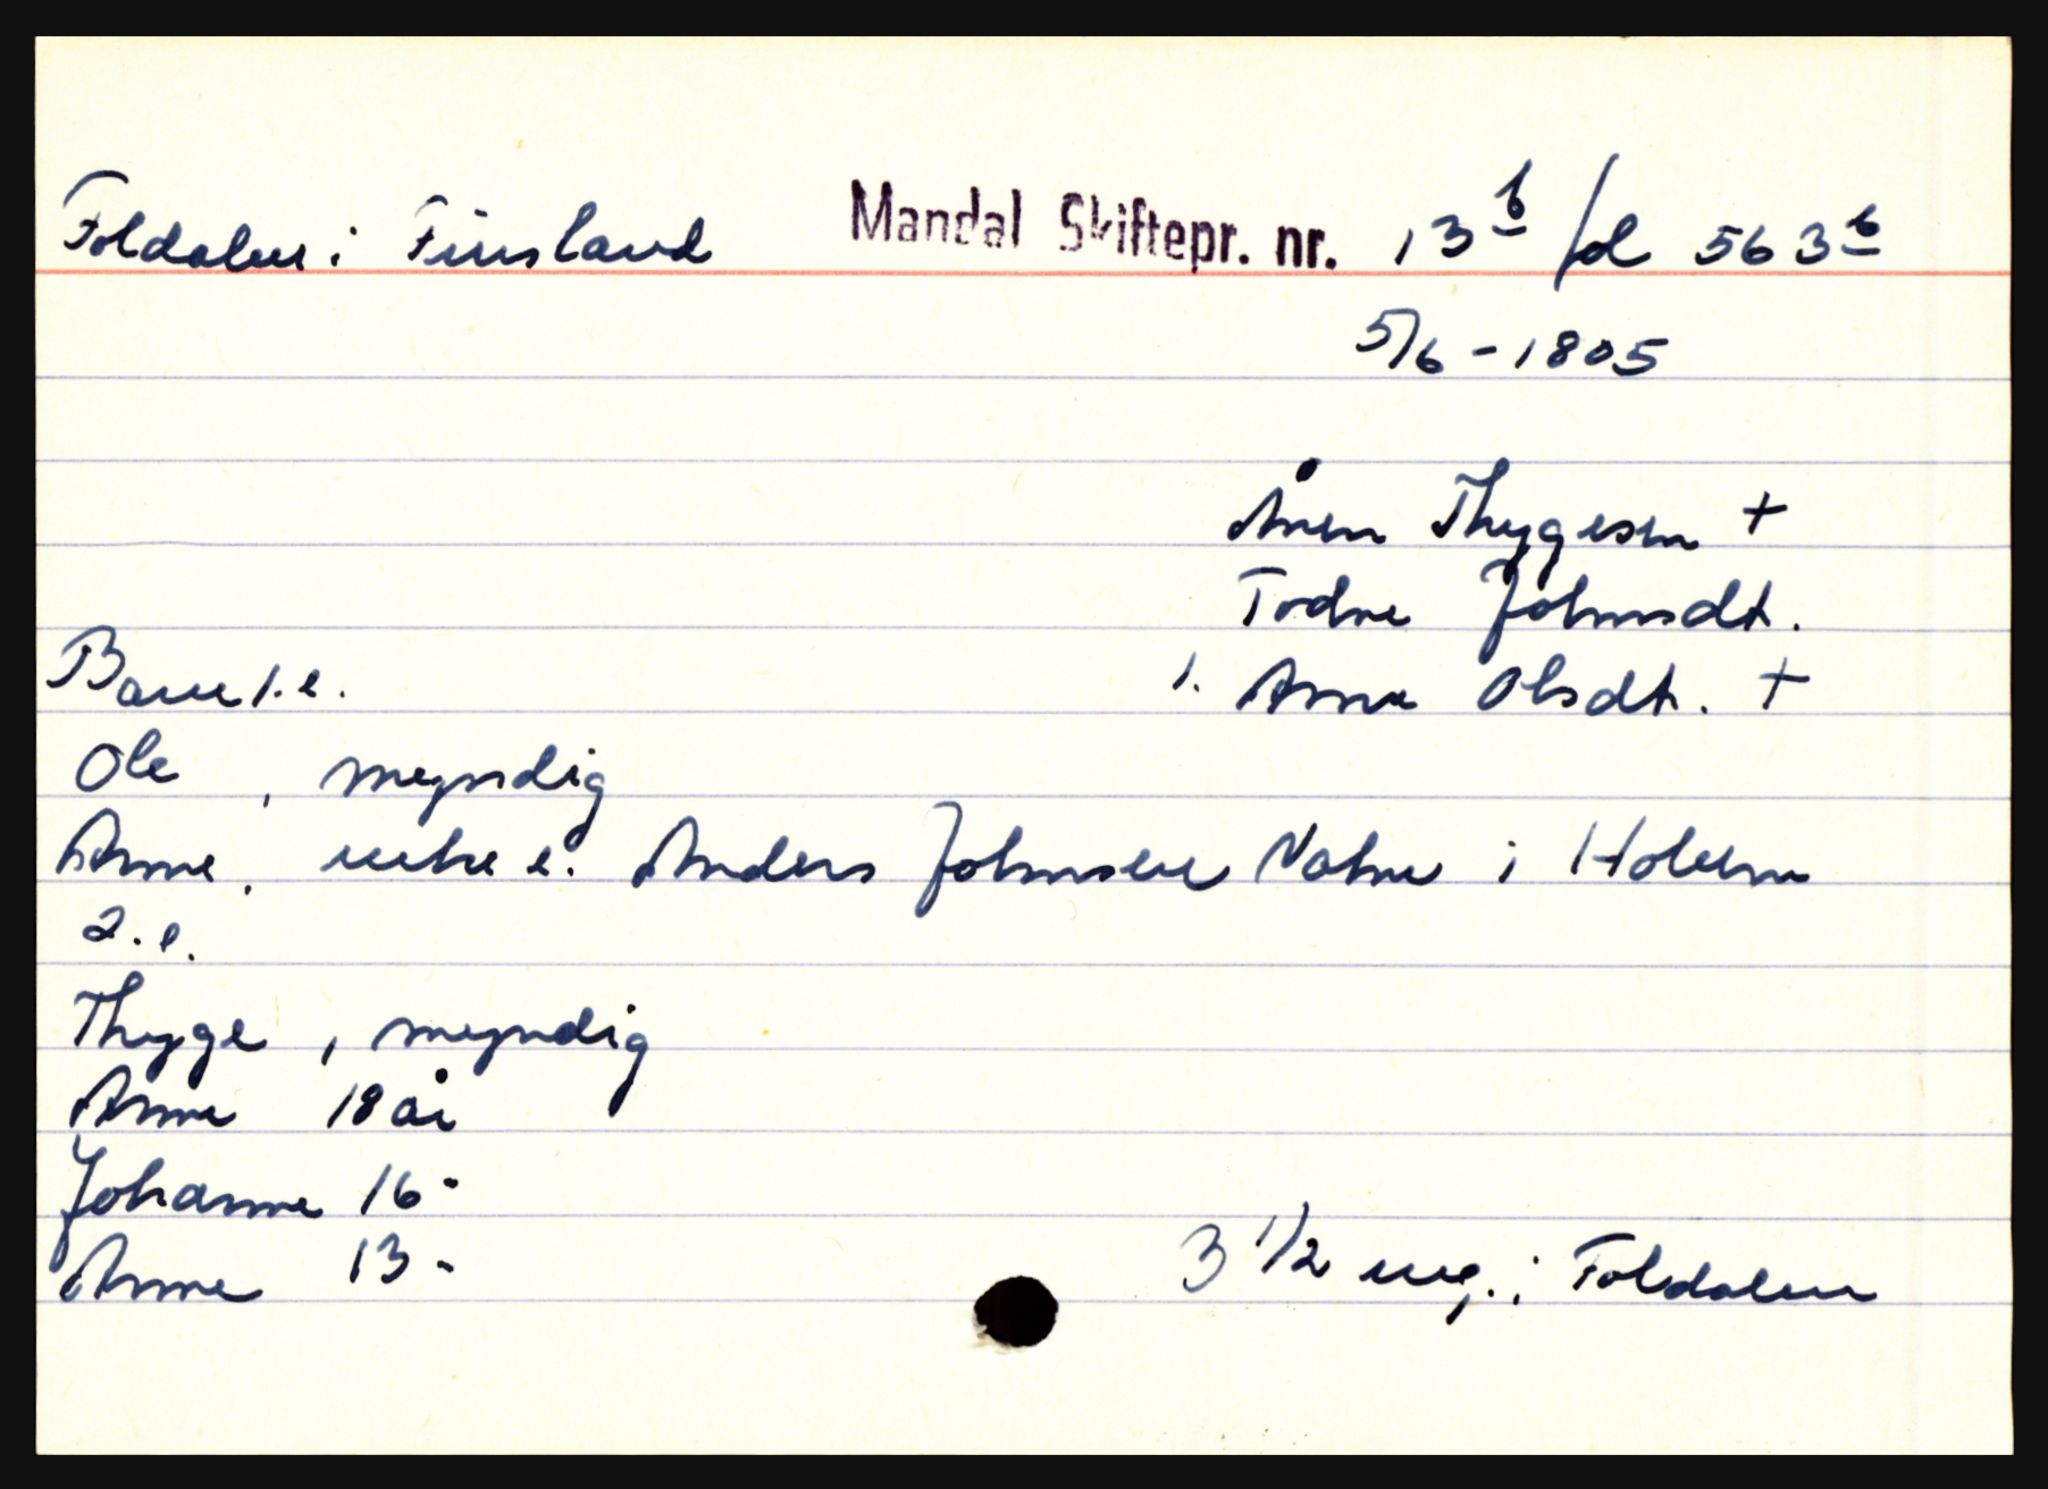 Foldalen i Finsland Mandal Skiftepr. nr. 13b fol 563b
5/6 - 1805
Ånen Thygesen +
Todne Johnsdt.
Barn 1.e. 1. Anne Olsdt. +
Ole , myndig
Anne, enke e. Anders Johnsen Vatne i Holum
2.e.
Thyge , myndig
Anne 18 år
Johanne 16 -
Anne 13 - 3 1/2 eng. i Foldalen